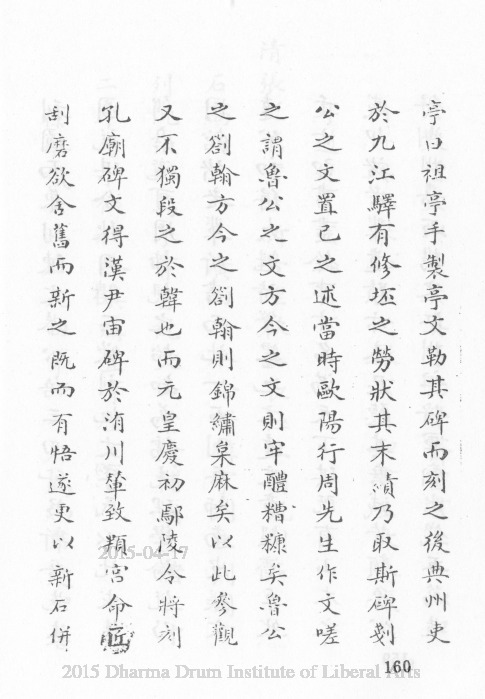 亭曰祖亭手製亭文勒其碑而刻之後典州吏
於九江驛有修坯之勞狀其末績乃取斯碑剗
公之文置己之述當時歐陽行周先生作文嗟
之謂魯公之文方今之文則牢醴糟糠矣魯公
之劄翰方今之劄翰則錦繡枲麻矣以此參觀
又不獨段之於韓也而元皇慶初鄢陵令將刻
孔廟碑文得漢尹宙碑於洧川輦致頖宮命匠
刮磨欲舍舊而新之既而有悟遂更以新石併
2015-04-17
160
2015 Dharma Drum Institute of Liberal Arts